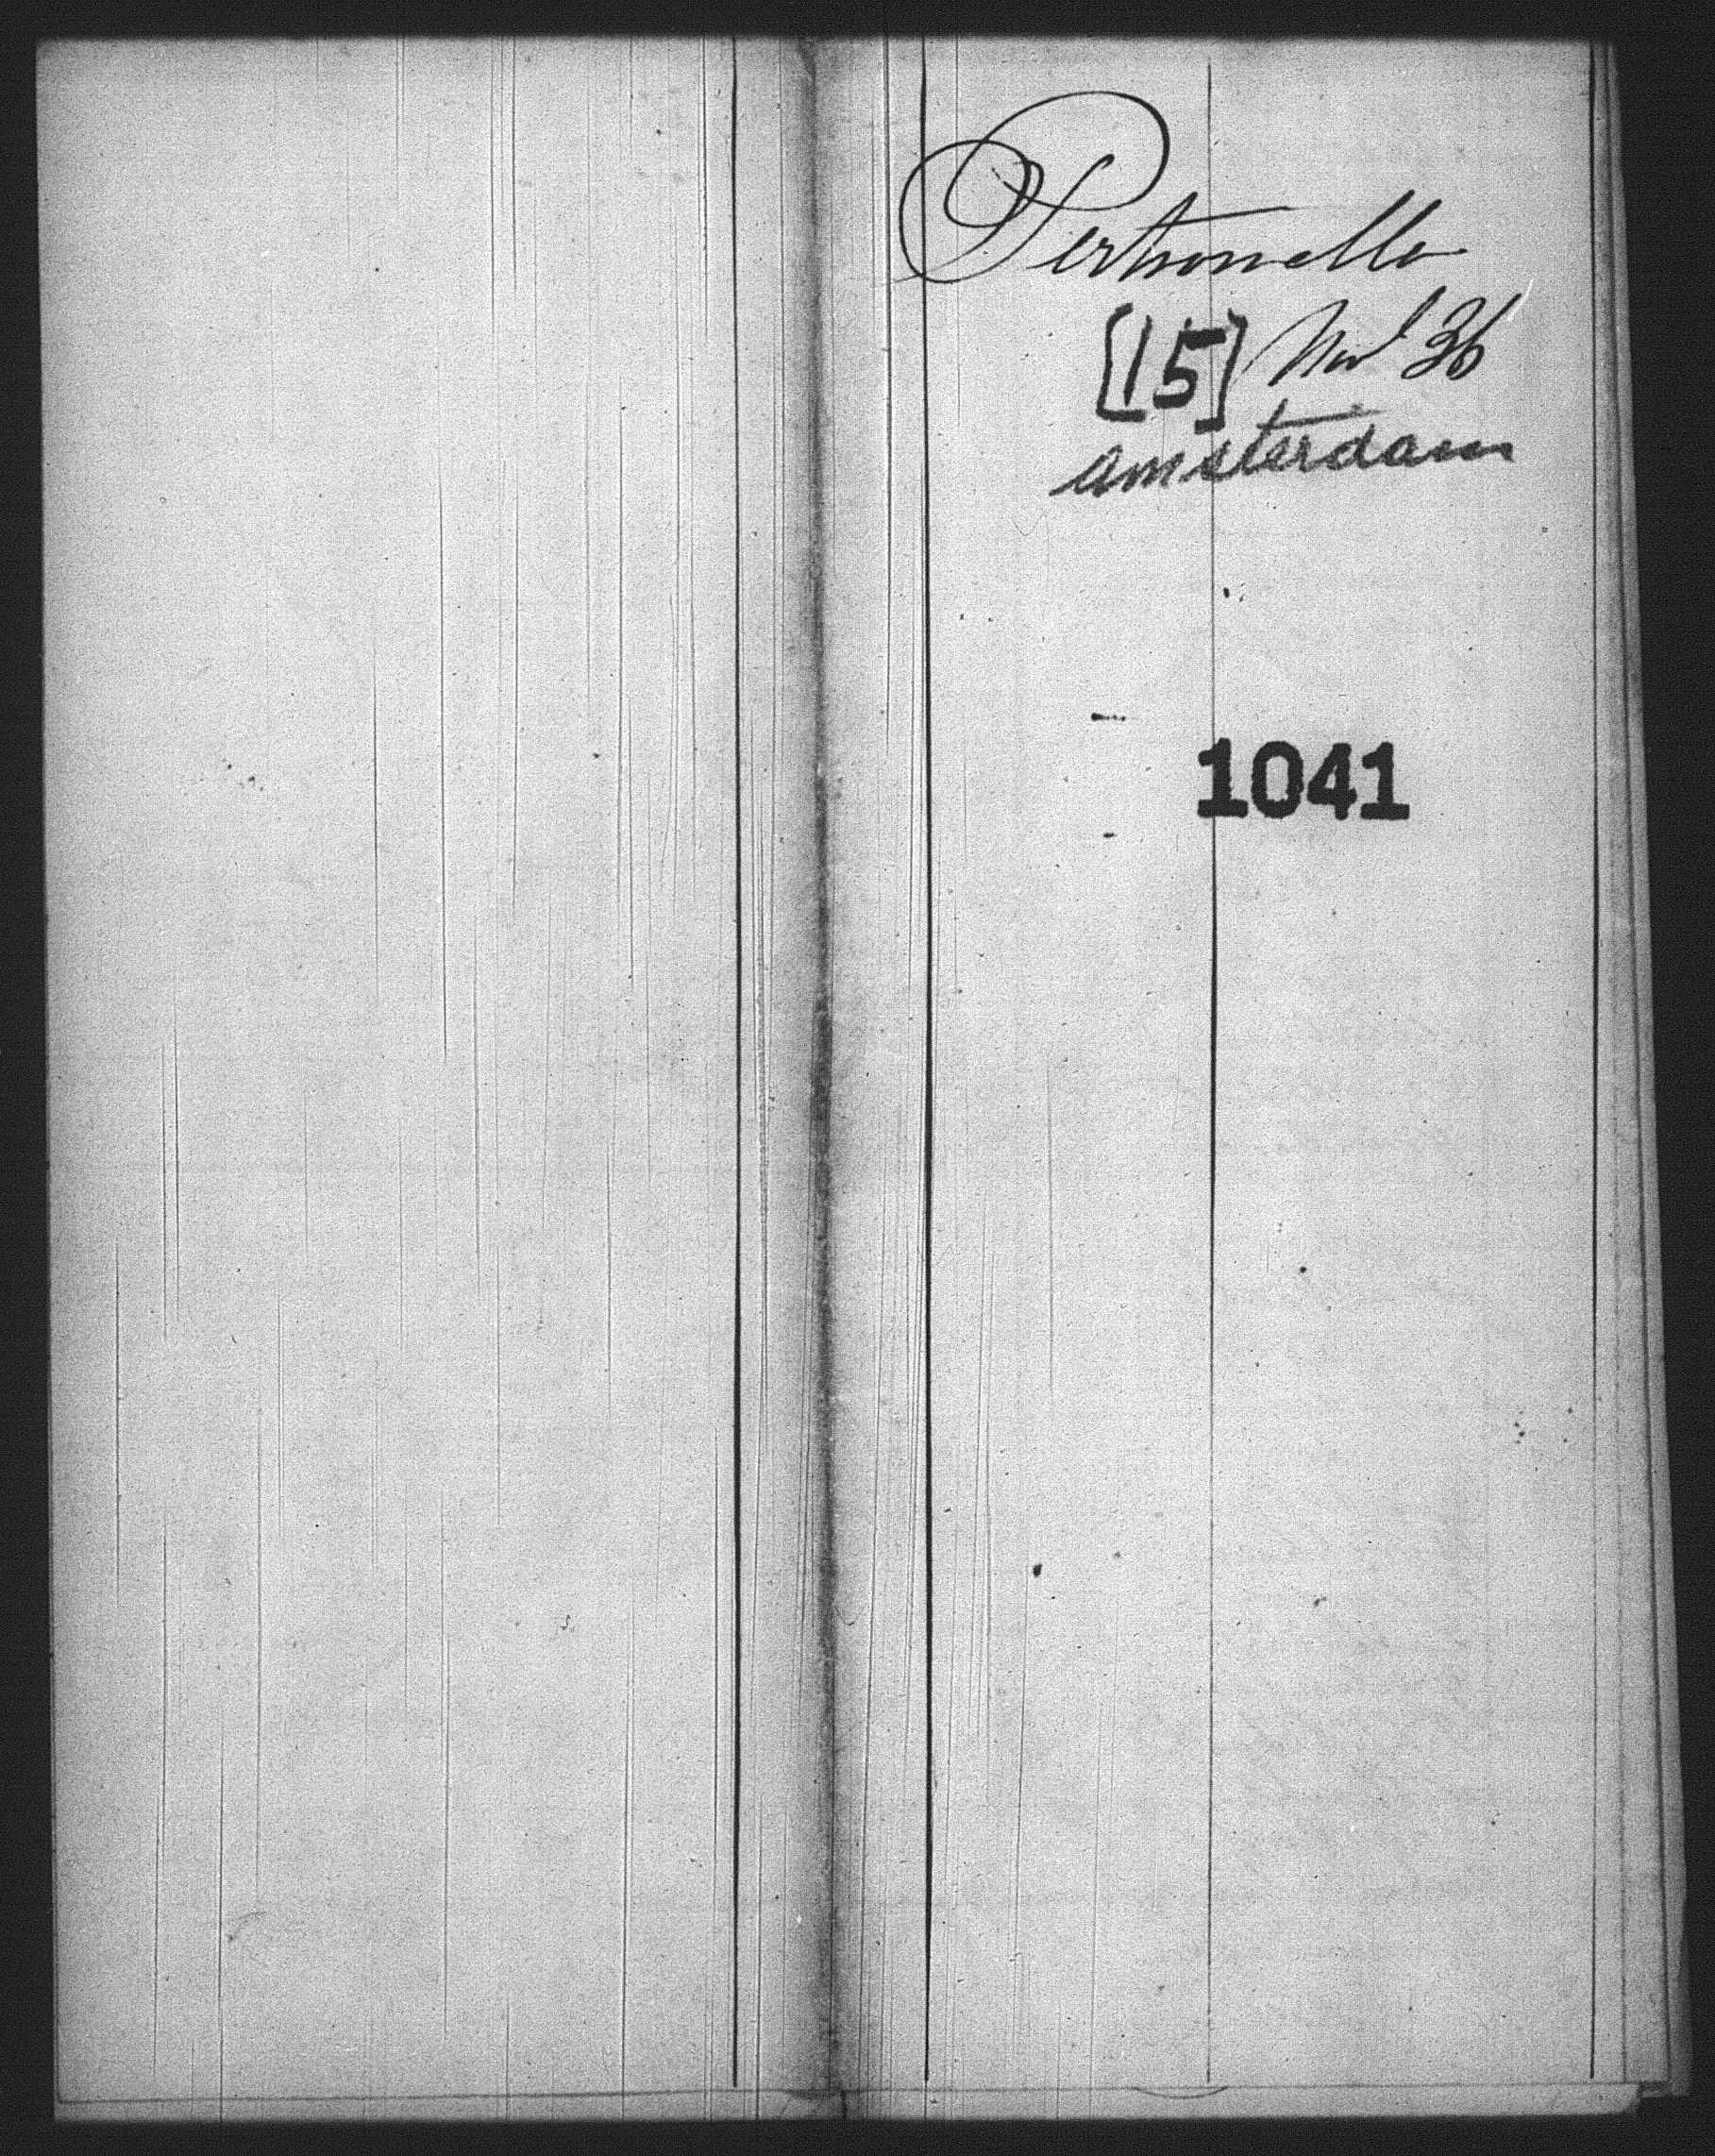 Pertronella
[15] Nov 36
Amsterdam
1041